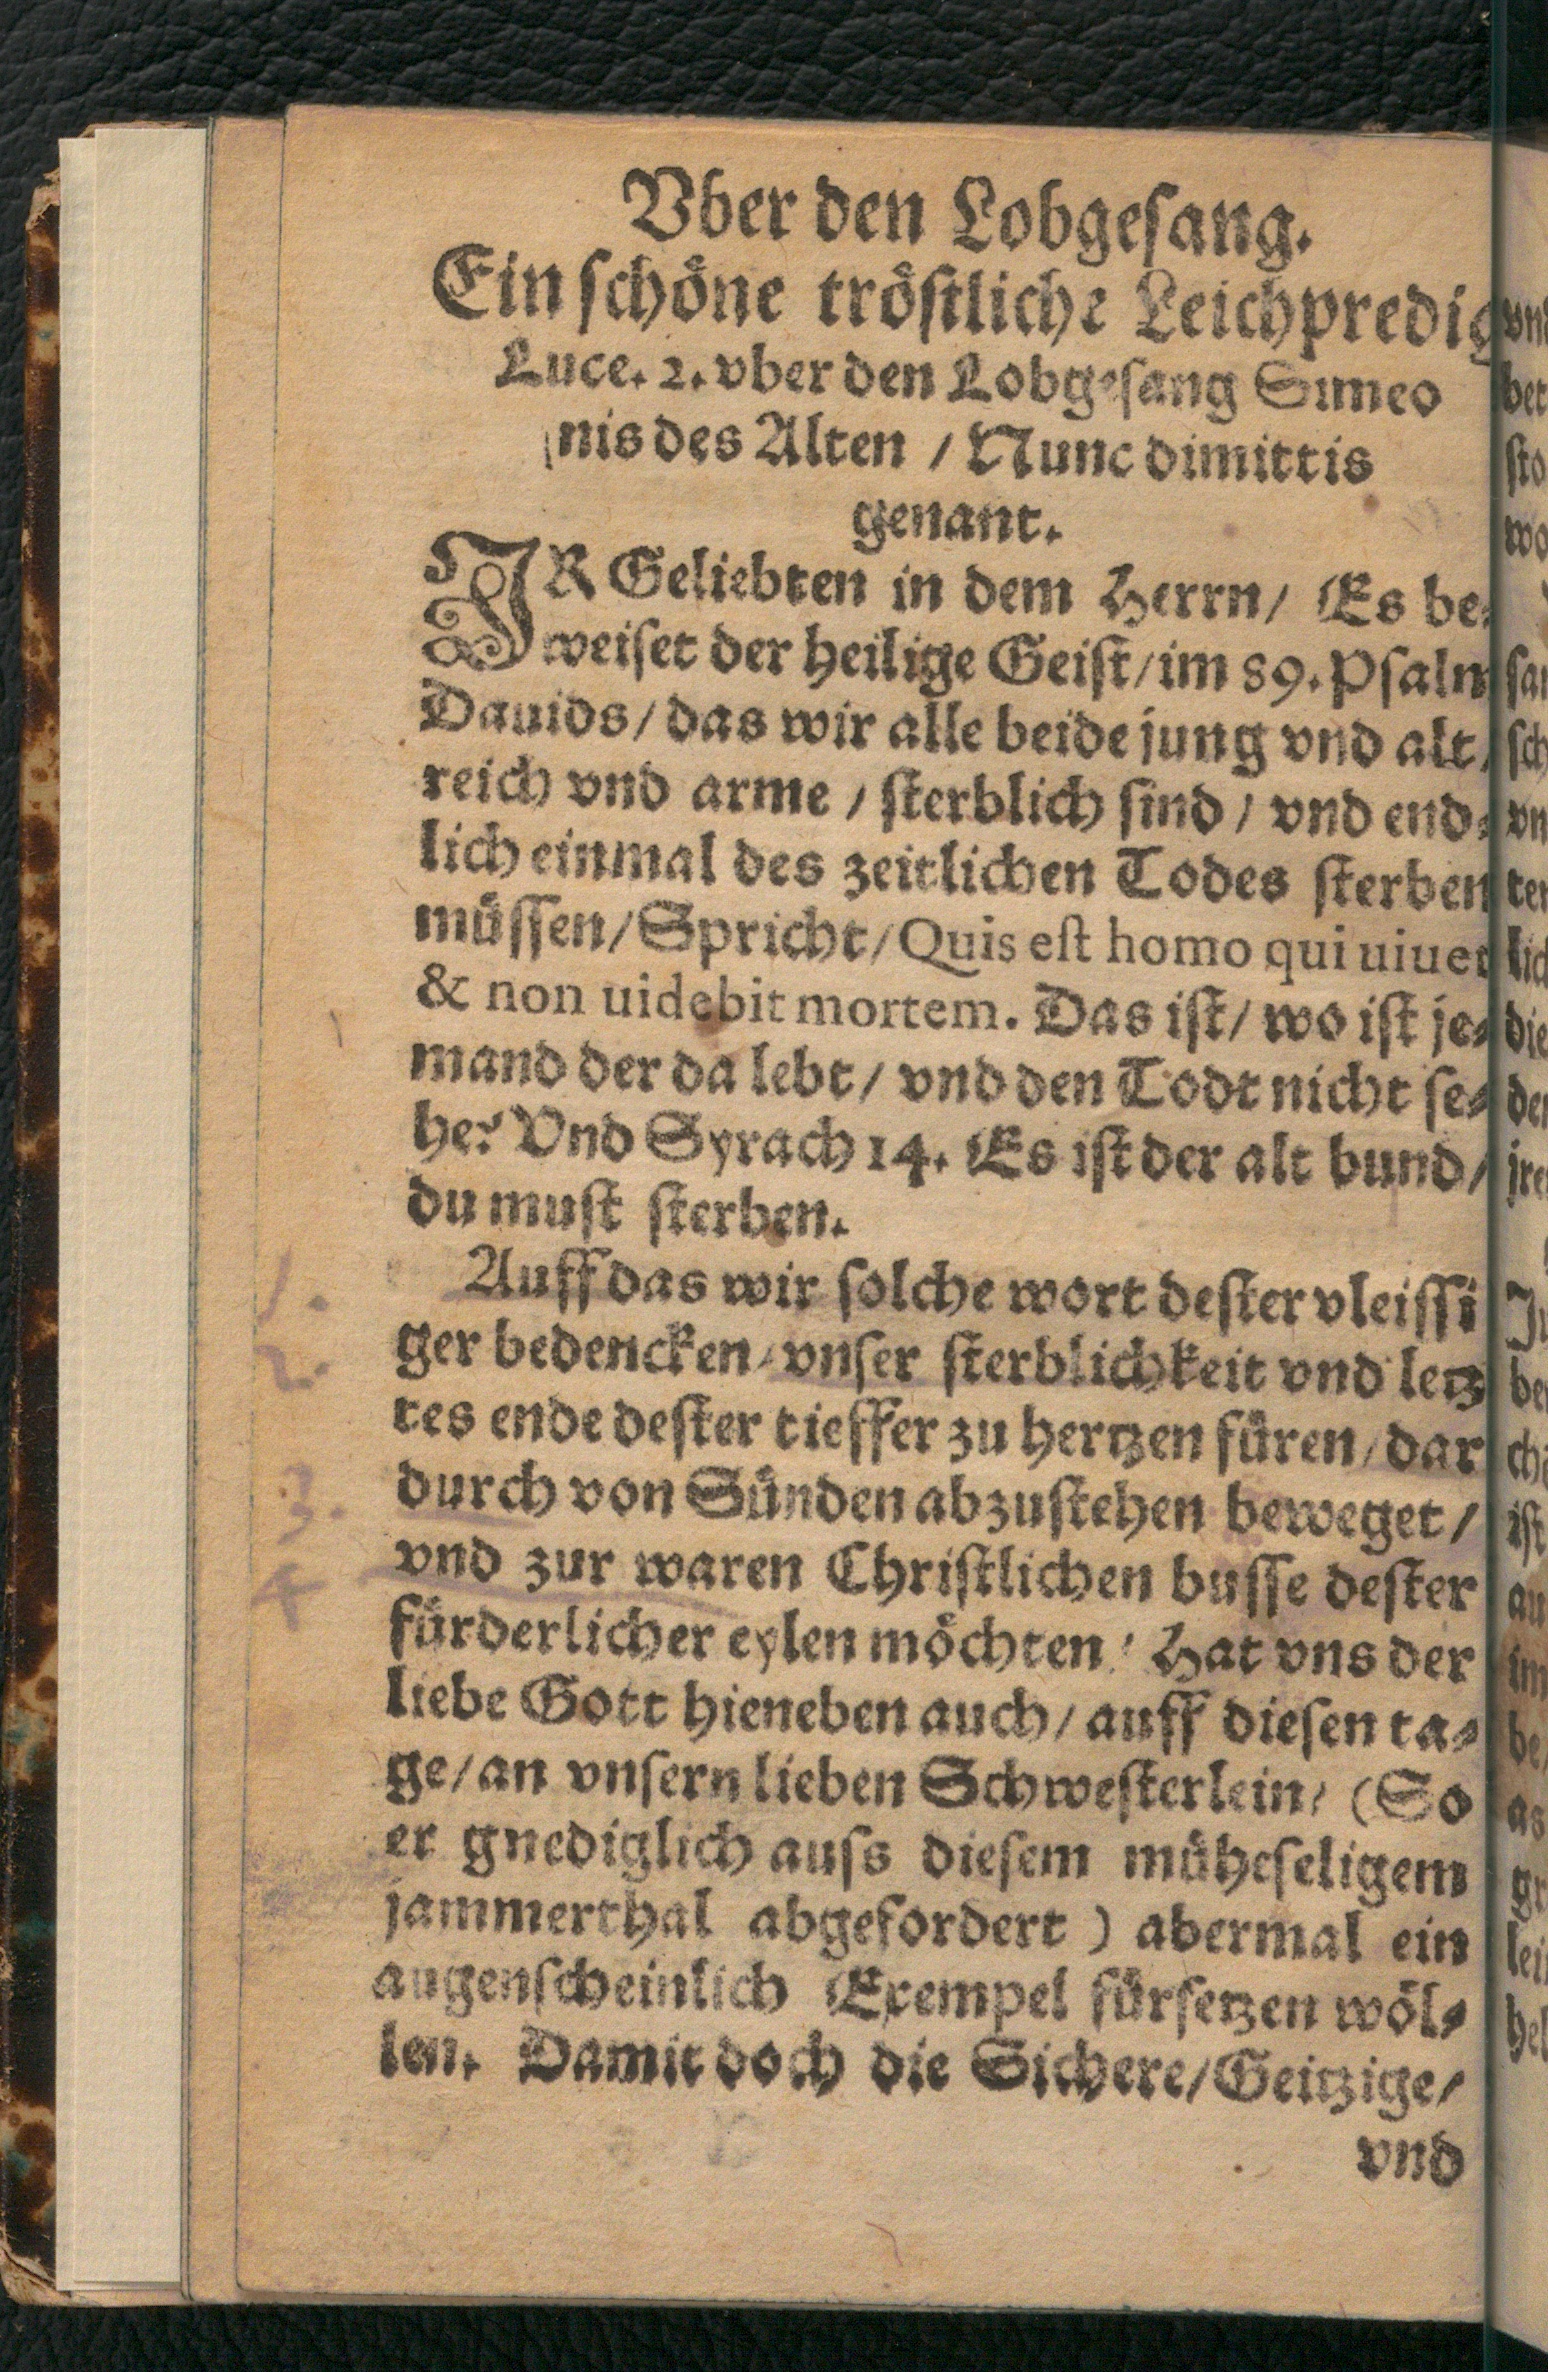 Vber den Lobgesang.
Ein schöne tröstliche Leichpredig
Luce. 2. vber den Lobgesang Simeo
nis des Alten / Nunc dimittis
genant.
IR Geliebten in dem Herrn / Es be⸗
weiset der heilige Geist / im 89. Psalm
Dauids / das wir alle beide jung vnd alt /
reich vnd arme / sterblich sind / vnd end⸗
lich einmal des zeitlichen Todes sterben
müssen / Spricht / Quis est homo qui uiuet
& non uidebit mortem. Das ist / wo ist je⸗
mand der da lebt / vnd den Todt nicht se⸗
he? Vnd Syrach 14. Es ist der alt bund /
du must sterben.
1. Auff das wir solche wort dester vleissi
2. ger bedencken / vnser sterblichkeit vnd letz
tes ende dester tieffer zu hertzen füren / dar
3. durch von Sünden abzustehen beweget /
4 vnd zur waren Christlichen busse dester
fürderlicher eylen möchten / Hat vns der
liebe Gott hieneben auch / auff diesen ta⸗
ge / an vnsern lieben Schwesterlein / (So
er gnediglich auss diesem müheseligem
jammerthal abgefordert) abermal ein
augenscheinlich Exempel fürsetzen wöl⸗
len. Damit doch die Sichere / Geitzige /
vnd